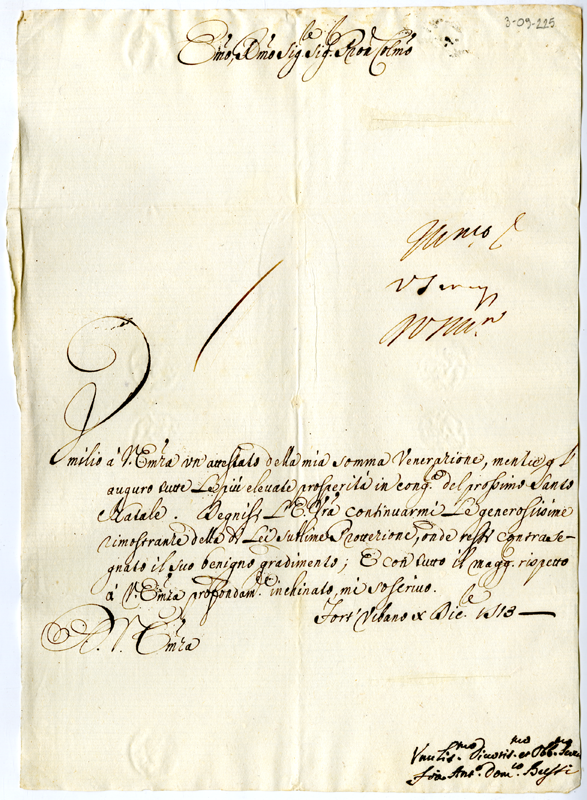 3-09-225
Emo, e Rmo Sig.re Sig. Pron Colmo
Umilio à V. Emza un attestato della mia somma Venerazione, mentre gl'
auguro tutte Le più elevate prosperità in cong.e del prossimo Santo
Natale. Degnisi L'E. Vra continuarmi Le generosissime
rimostranze della di Lei sublime Protezione, onde resti contrase-
gnato il suo benigno gradimento; E con tutto il magg. rispetto
à V. Emza profondam.te inchinato, mi soscrivo.
Di V. Emza
Vmilis.mo Divotis.mo et Obb.mo
Ant.o Dom.co Bussi